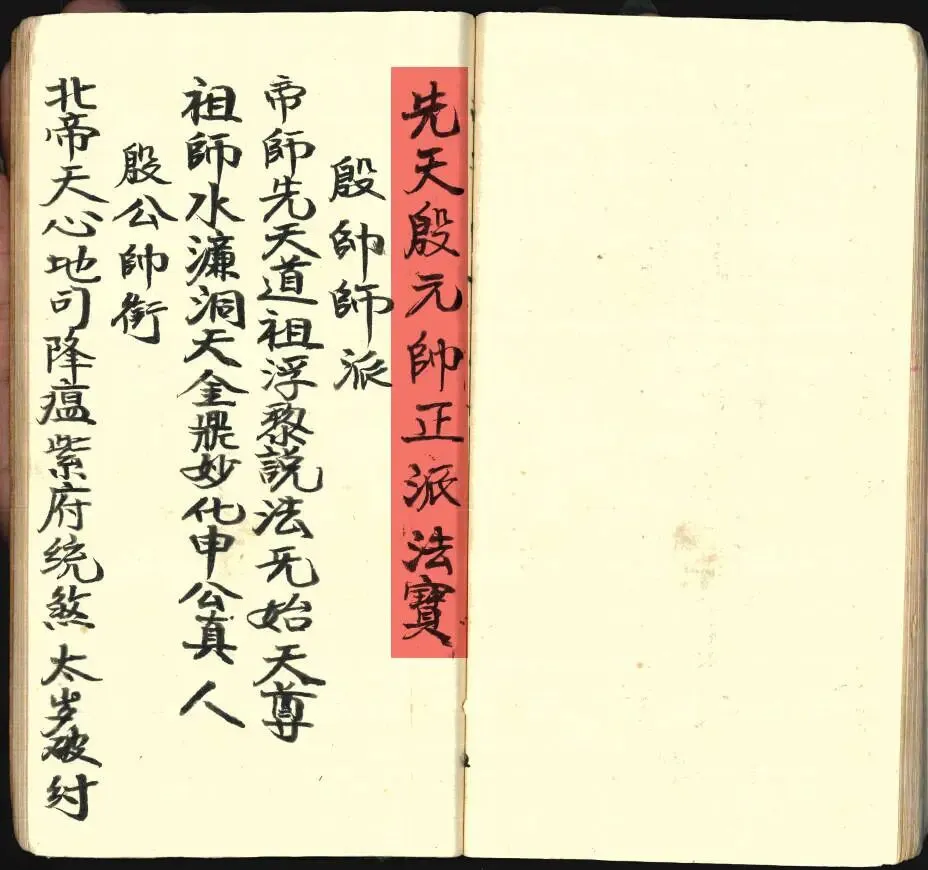 先天殷元帥正派法寶
殷帥師派
帝師先天道祖浮黎說法无始天尊
祖師水濂洞天金鼎妙化申公真人
殷公帥銜
北帝天心地司降瘟紫府統煞太岁破紂